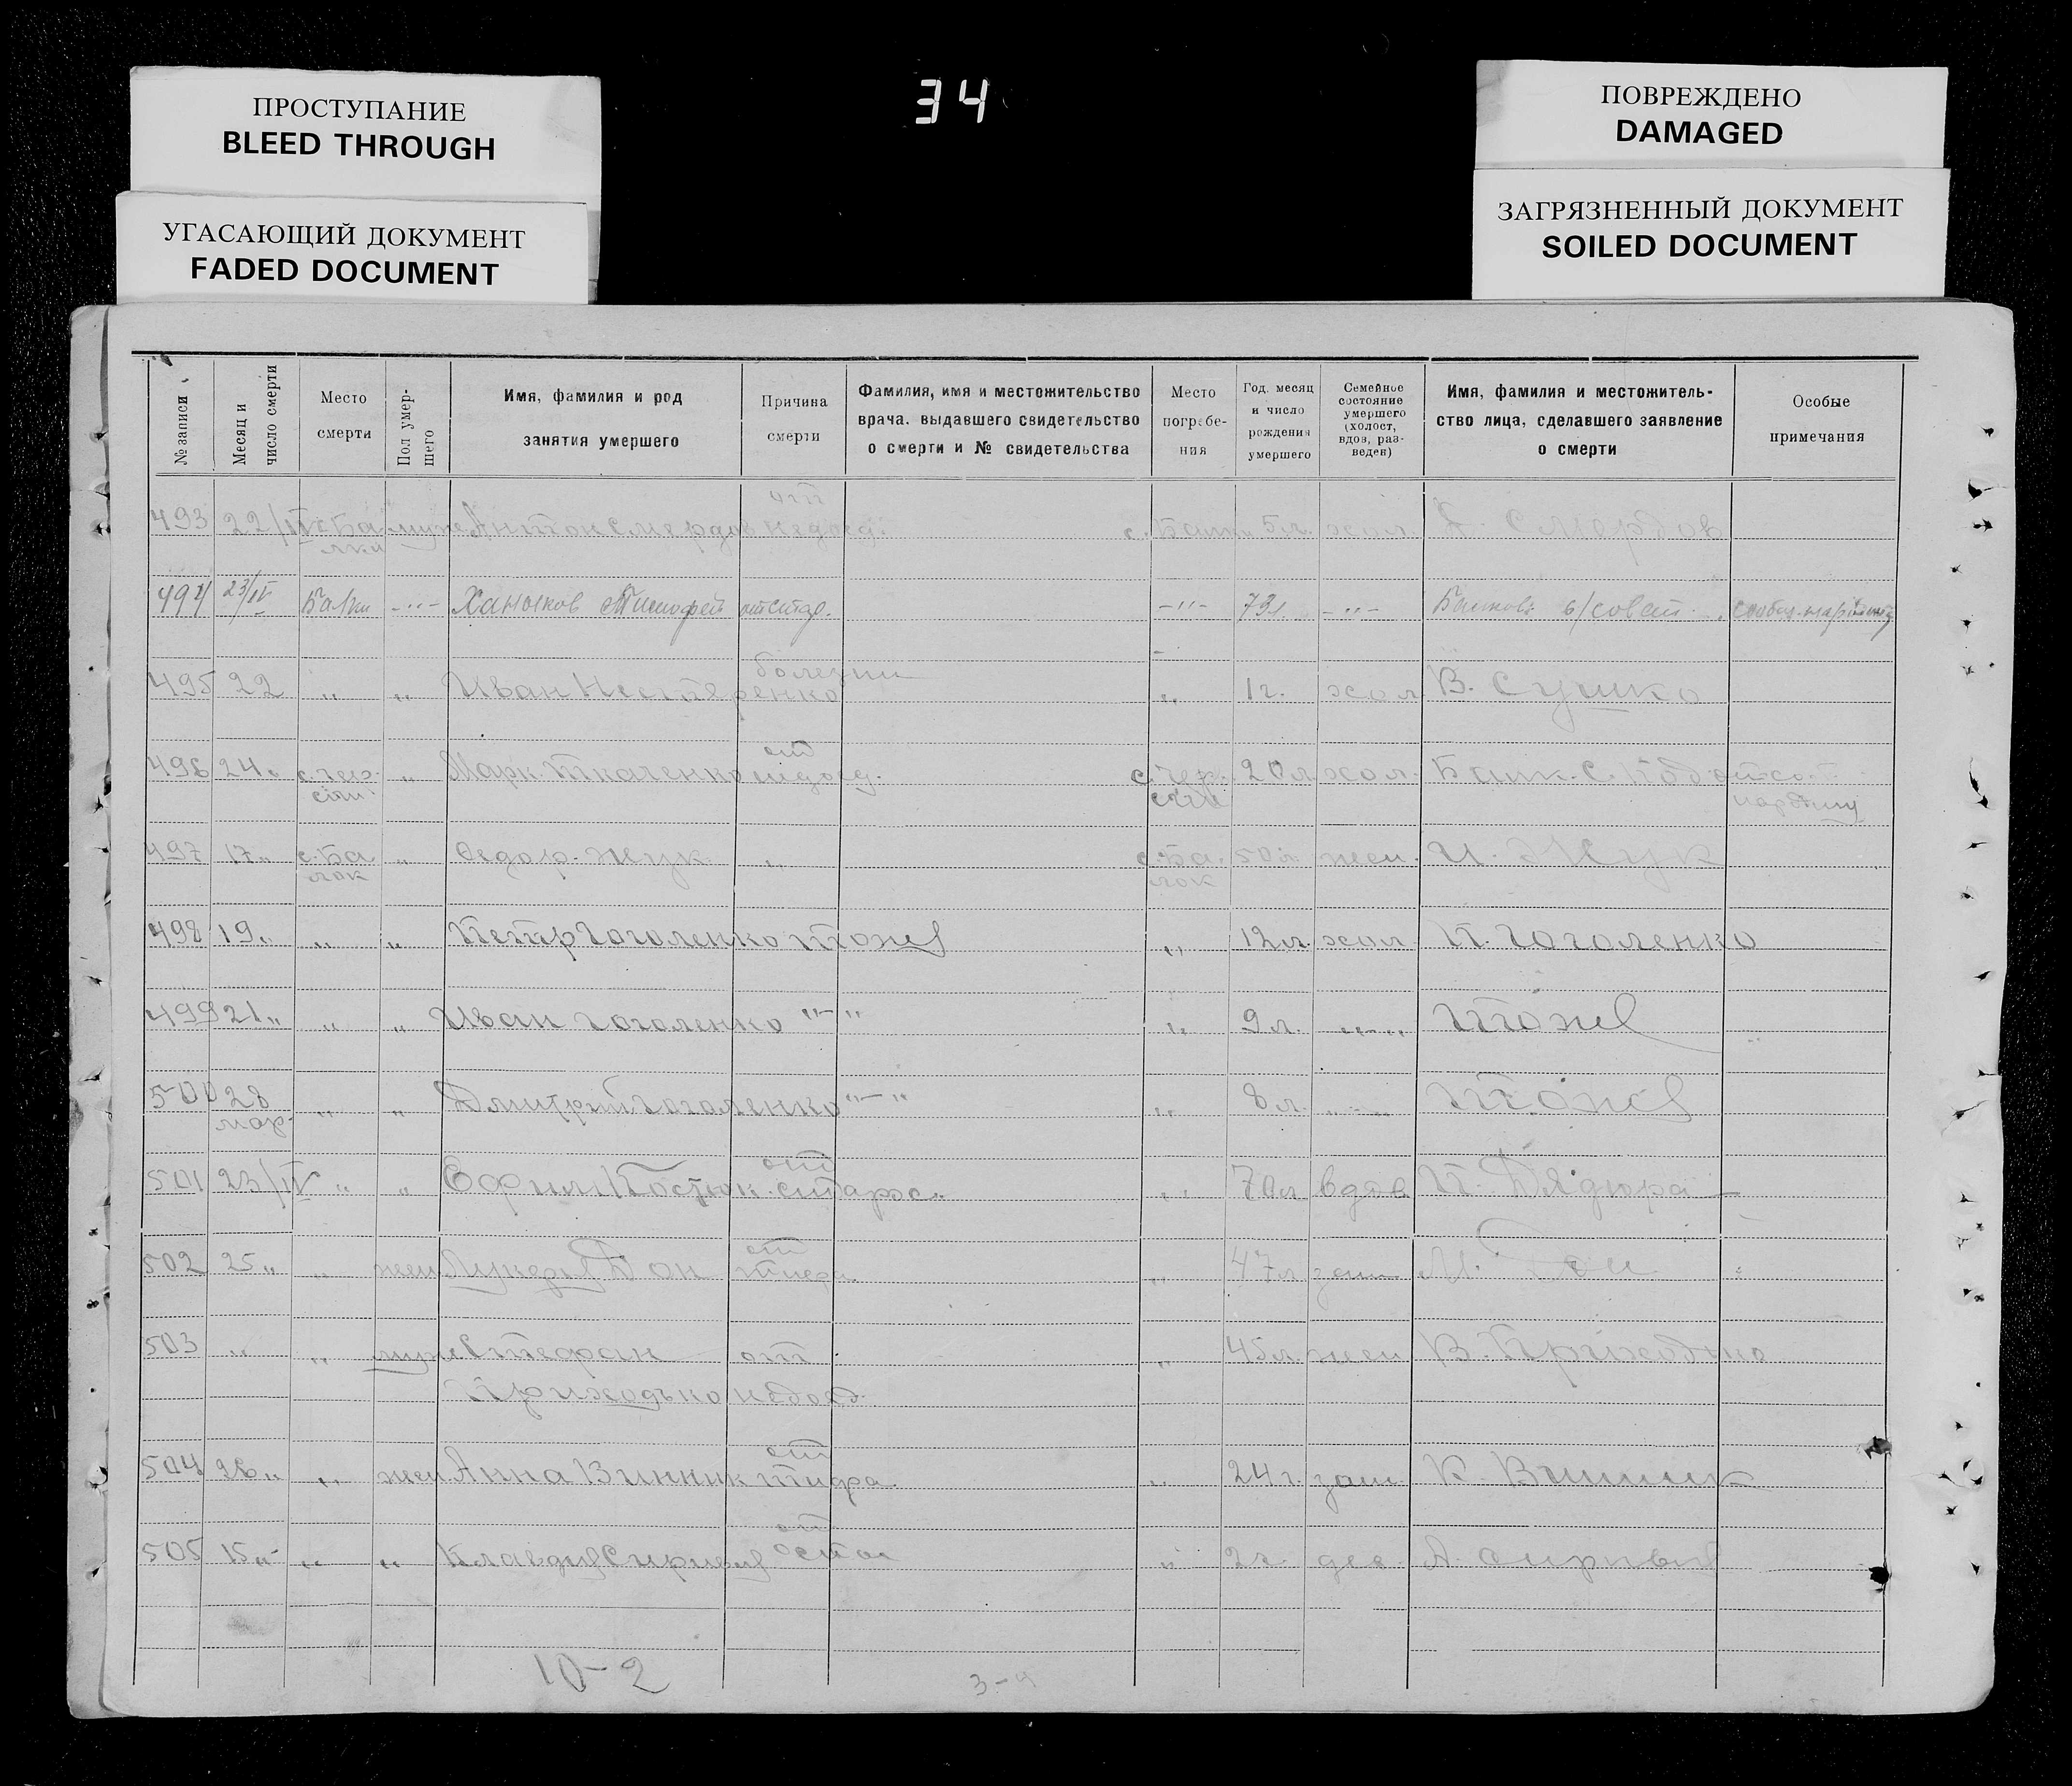 ПРОСТУПАНИЕ
BLEED THROUGH
УГАСАЮЩИЙ ДОКУМЕНТ
FADED DOCUMENT
34
ПОВРЕЖДЕНО
DAMAGED
ЗАГРЯЗНЕННЫЙ ДОКУМЕНТ
SOILED DOCUMENT
№ записи
Месяц и
число смерти
Место
смерти
Пол умер-
шего
Имя, фамилия и род
занятия умершего
Причина
смерти
Фамилия, имя и местожительство
врача, выдавшего свидетельство
о смерти и № свидетельства
Место
погребе-
ния
Год, месяц
и число
рождения
умершего
Семейное
состояние
умершего
(холост,
вдов, раз-
веден)
Имя, фамилия и местожитель-
ство лица, сделавшего заявление
о смерти
Особые
примечания
от
493 22/IV с. Ба муж Антон Смердов недоед. с. Балки 5л. хол. Смердов
лки
494 23/IV Балки -"- Ханыков Тимофей -"- 73л. -"-
болезни
495 22 " " Иван Нестеренко " 1г. хол В. Сушко
от
496 24 " " Марк Ткаченко недоед. 20л хол.
497 17 " с. Ба " Федор Жук " с. Ба 50л. жен. И. Жук
лок лок
498 19 " " " Петр Гоголенко тоже " 12л. хол П. Гоголенко
499 21 " " " Иван Гоголенко "-" " 9л. "-" тоже
500 28 " " Дмитрий Гоголенко "-" " 8л. "-" тоже
мар.
от
501 23/IV " " Ефим Костюк старос. " 70л вдов П. Дядюра
от
502 25 " " жен Лукерья Дон тифа " 47л зам М. Дон
503 " " муж Стефан от " 45л. жен В. Приходько
Приходько недоед.
от
504 26 " " жен Анна Винник тифа " 24г. зам. К. Винник
от
505 15 " " " Клавдия оспы " 2г. дев А.
10-2
3-4